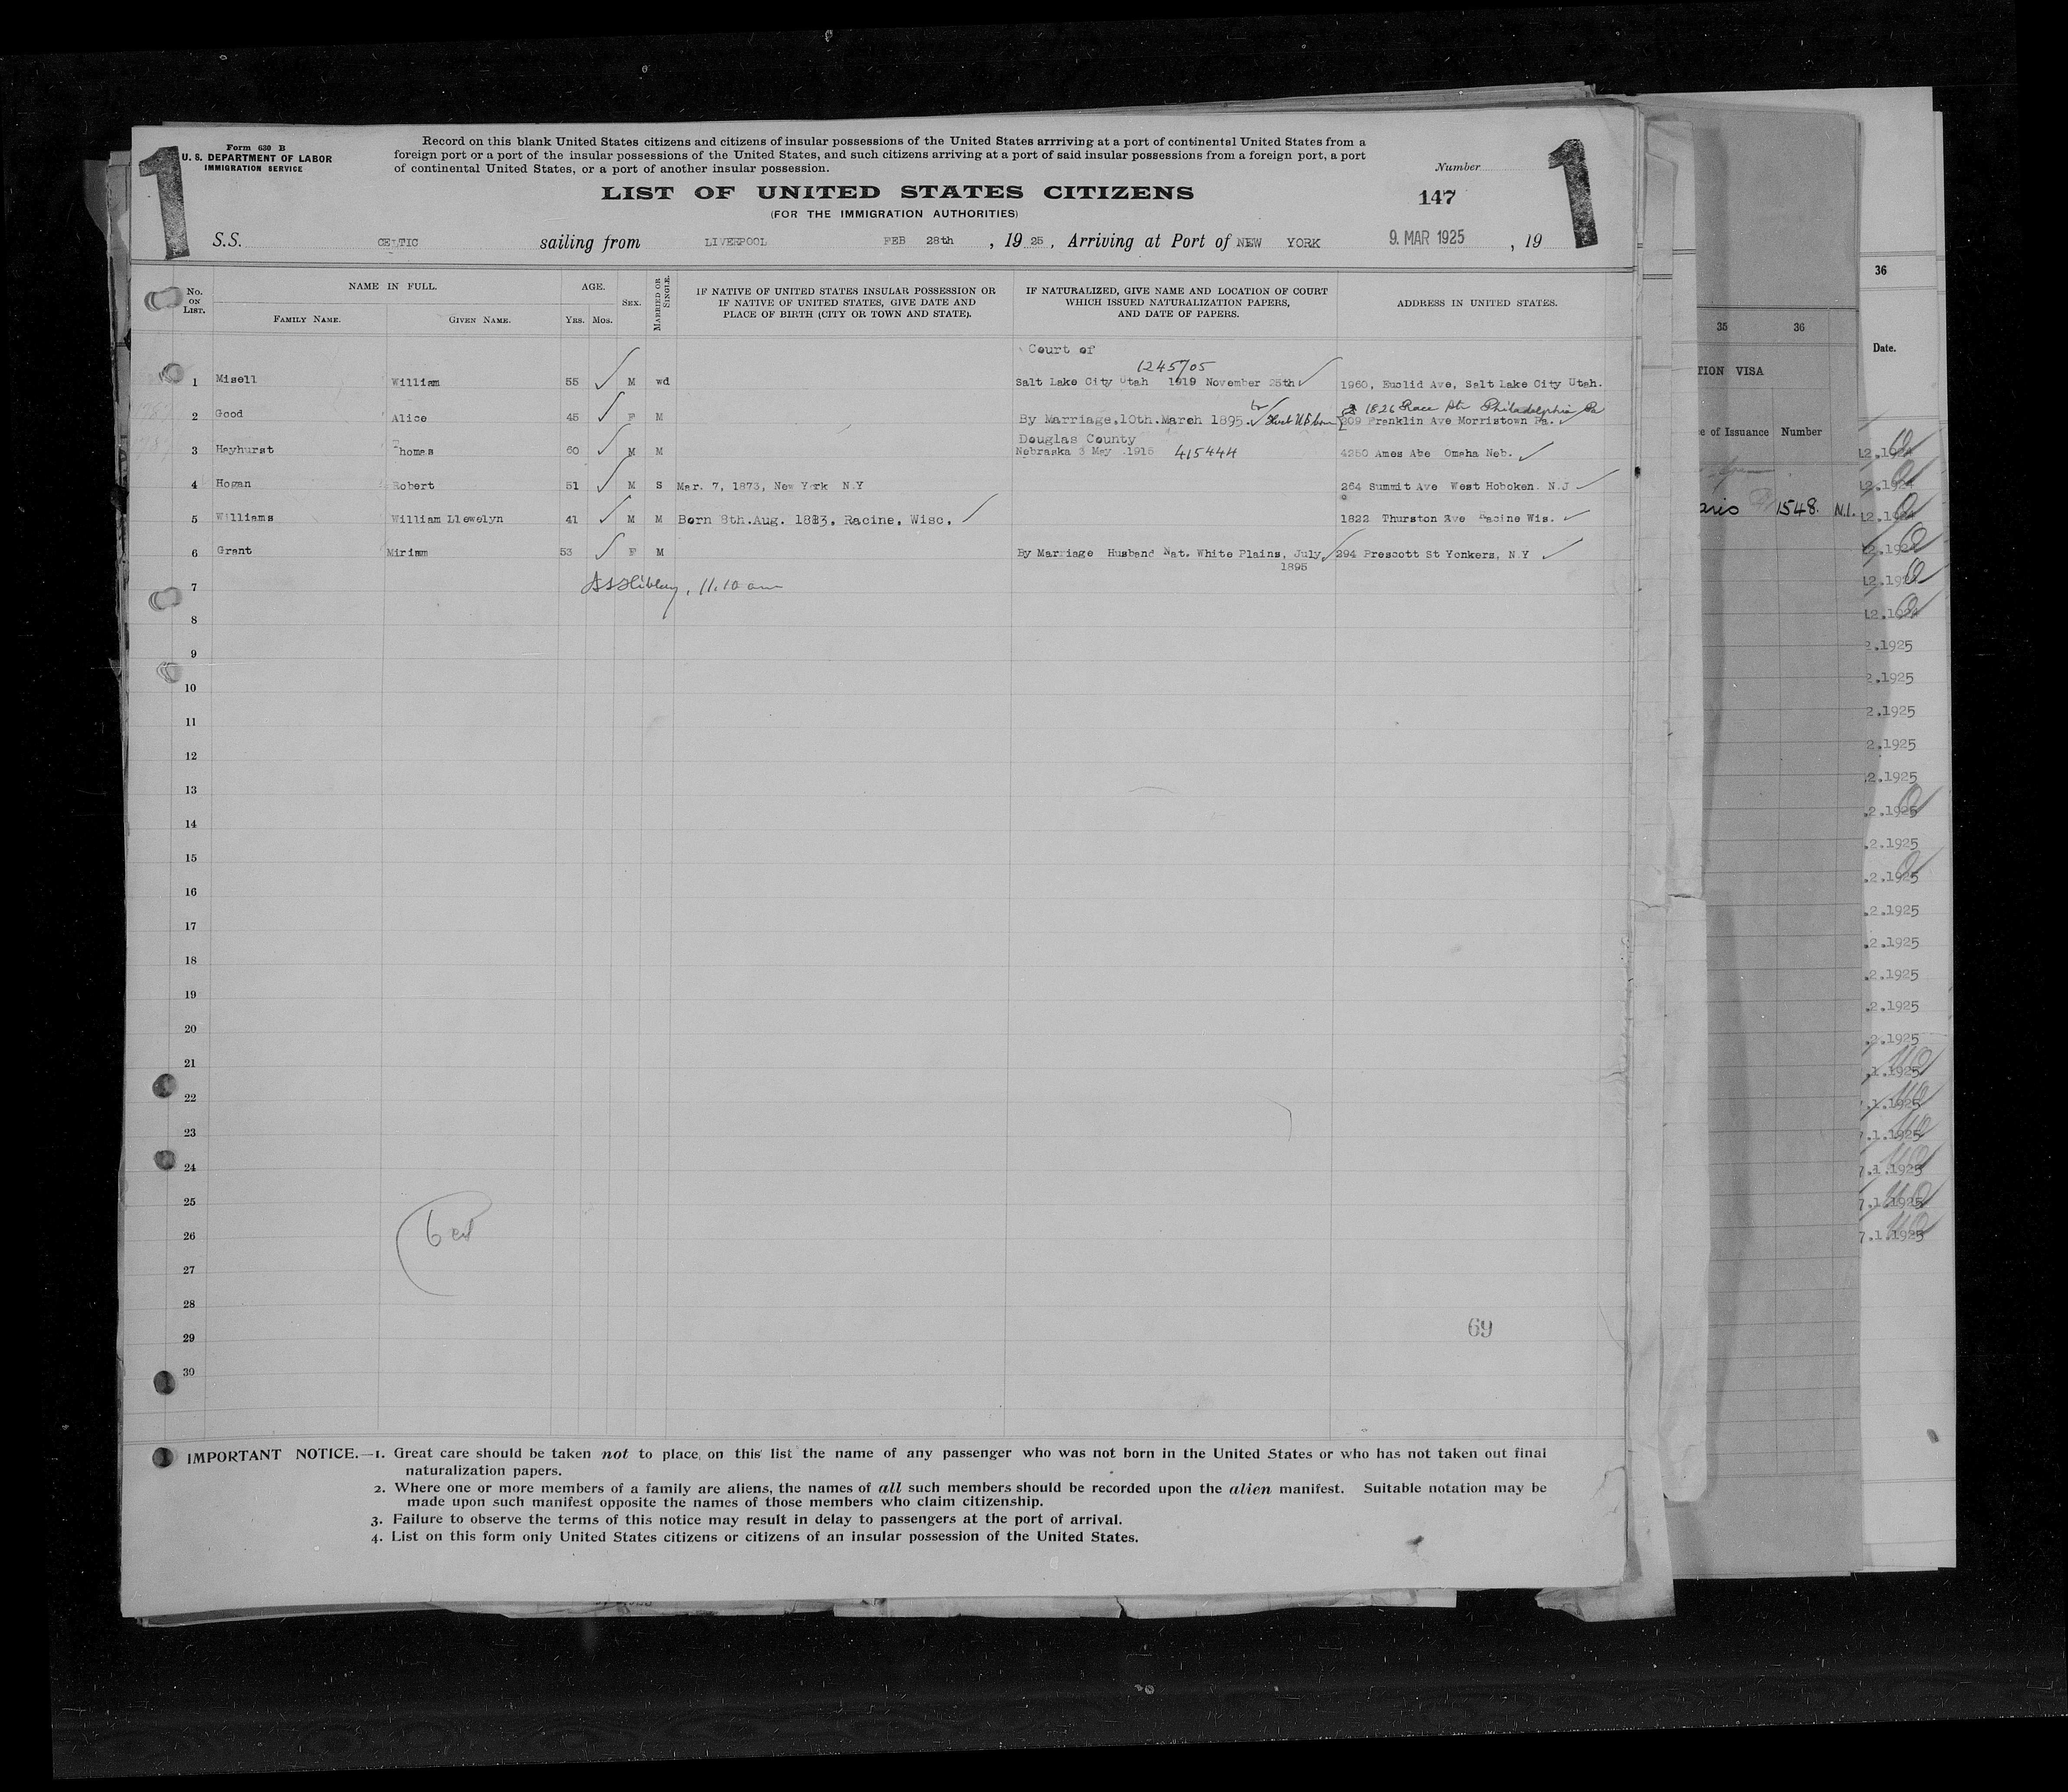 1
Form 630 B
U. S. DEPARTMENT OF LABOR
IMMIGRATION SERVICE
Record on this blank United States citizens and citizens of insular possessions of the United States arrriving at a port of continental United States from a
foreign port or a port of the insular possessions of the United States, and such citizens arriving at a port of said insular possessions from a foreign port, a port
of continental United States, or a port of another insular possession.
Number
1
LIST OF UNITED STATES CITIZENS
147
(FOR THE IMMIGRATION AUTHORITIES)
S.S. CELTIC sailing from LIVERPOOL FEB 28th , 19 25 , Arriving at Port of NEW YORK 9. MAR 1925 , 19
No. ON LIST. NAME IN FULL. FAMILY NAME. GIVEN NAME. AGE. YRS. MOS. SEX. MARRIED OR SINGLE.
IF NATIVE OF UNITED STATES INSULAR POSSESSION OR
IF NATIVE OF UNITED STATES, GIVE DATE AND
PLACE OF BIRTH (CITY OR TOWN AND STATE).
IF NATURALIZED, GIVE NAME AND LOCATION OF COURT
WHICH ISSUED NATURALIZATION PAPERS,
AND DATE OF PAPERS.
ADDRESS IN UNITED STATES.
Court of
1245705
1 Misell William 55 M wd Salt Lake City Utah 1919 November 25th 1960, Euclid Ave, Salt Lake City Utah.
1826 Race St Philadelphia Pa
2 Good Alice 45 F M By Marriage,10th.March 1895. 209 Franklin Ave Morristown Pa.
Douglas County
3 Hayhurst Thomas 60 M M Nebraska 3 May 1915 415444 4250 Ames Abe Omaha Neb.
4 Hogan Robert 51 M S Mar. 7, 1873, New York N.Y 264 Summit Ave West Hoboken. N.J
5 Williams William Llewelyn 41 M M Born 8th.Aug. 1883, Racine, Wisc, 1822 Thurston Ave Racine Wis.
6 Grant Miriam 53 F M By Marriage Husband Nat. White Plains, July 294 Prescott St Yonkers, N.Y
1895
7 11.10 am
8
9
10
11
12
13
14
15
16
17
18
19
20
21
22
23
24
25
26
6
27
28
29
69
30
IMPORTANT NOTICE.—1. Great care should be taken not to place on this list the name of any passenger who was not born in the United States or who has not taken out final
naturalization papers.
2. Where one or more members of a family are aliens, the names of all such members should be recorded upon the alien manifest. Suitable notation may be
made upon such manifest opposite the names of those members who claim citizenship.
3. Failure to observe the terms of this notice may result in delay to passengers at the port of arrival.
4. List on this form only United States citizens or citizens of an insular possession of the United States.
35 36
TION VISA
e of Issuance Number
1548. N.I.
36
Date.
12.1924
12.1924
12.1924
12.1924
12.1924
12.1924
2.1925
2.1925
2.1925
2.1925
.2.1925
.2.1925
.2.1925
.2.1925
.2.1925
.2.1925
.2.1925
.2.1925
.2.1925
.1.1925
.1.1925
7.1.1925
7.1.1925
7.1.1925
7.1.1925